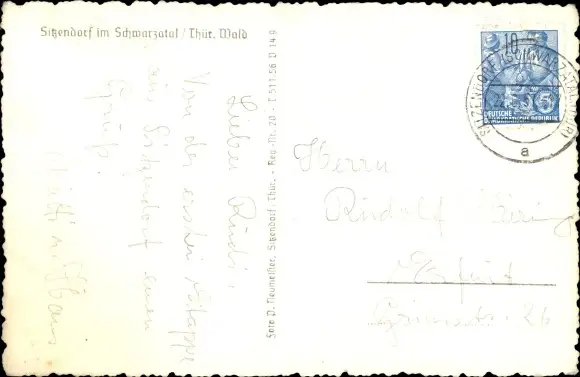 Sitzendorf im Schwarzatal / Thür. Wald
Lieber Rudi,
Von der ersten Etappe
aus Sitzendorf einen
Gruß.
Foto D. Neumeister, Sitzendorf/Thür. - Reg-Nr. 20 - I 511 56 D 149
10
DEUTSCHE
DEMOKRATISCHE REPUBLIK
SITZENDORF (SCHWARZATAL)
a
Herrn
Rudolf
Erfurt
26